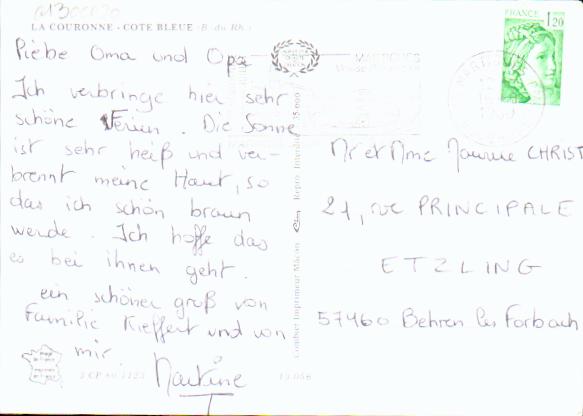 LA COURONNE - COTE BLEUE (B. du Rh.)
FRANCE 1,20
MARTIGUES
Piebe Oma und Opa
Ich verbringe hier sehr
schöne Ferien. Die Sonne
ist sehr heiß und ver-
brennt meine Haut, so
das ich schön braun
werde. Ich hoffe das
es bei ihnen geht.
ein schöner groß von
Familie Kieffert und von
mir.
Martine
Mr et Mme Maurice CHRIST
21, rue PRINCIPALE
ETZLING
57460 Behren les Forbach
Combier Imprimeur Mâcon